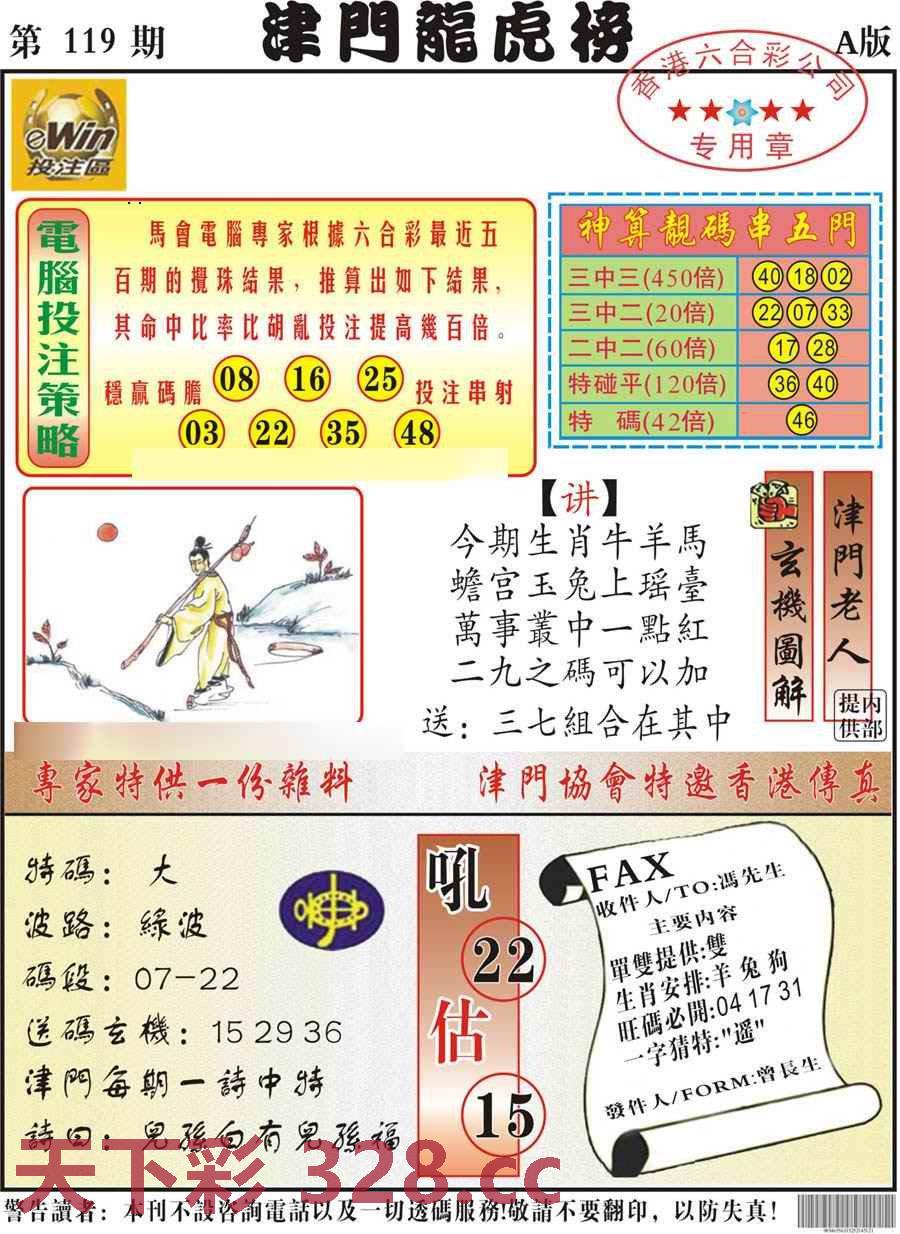 第 119 期
津門龍虎榜
A版
香港六合彩公司
专用章
eWin
投注區
電腦投注策略
馬會電腦專家根據六合彩最近五
百期的攪珠結果，推算出如下結果，
其命中比率比胡亂投注提高幾百倍。
穩贏碼膽 08 16 25 投注串射
03 22 35 48
神算靚碼串五門
三中三(450倍) 40 18 02
三中二(20倍) 22 07 33
二中二(60倍) 17 28
特碰平(120倍) 36 40
特 碼(42倍) 46
【讲】
今期生肖牛羊馬
蟾宫玉兔上瑶臺
萬事叢中一點紅
二九之碼可以加
送：三七組合在其中
玄機圖解
津門老人
内部
提供
專家特供一份雜料
津門協會特邀香港傳真
特碼：大
波路：綠波
碼段：07-22
送碼玄機：15 29 36
津門每期一詩中特
詩曰：兒孫自有兒孫福
吼
22
估
15
FAX
收件人/TO:馮先生
主要内容
單雙提供:雙
生肖安排:羊 兔 狗
旺碼必開:04 17 31
一字猜特:"遥"
發件人/FORM:曾長生
天下彩 328.cc
警告讀者：本刊不設咨詢電話以及一切透碼服務!敬請不要翻印，以防失真!